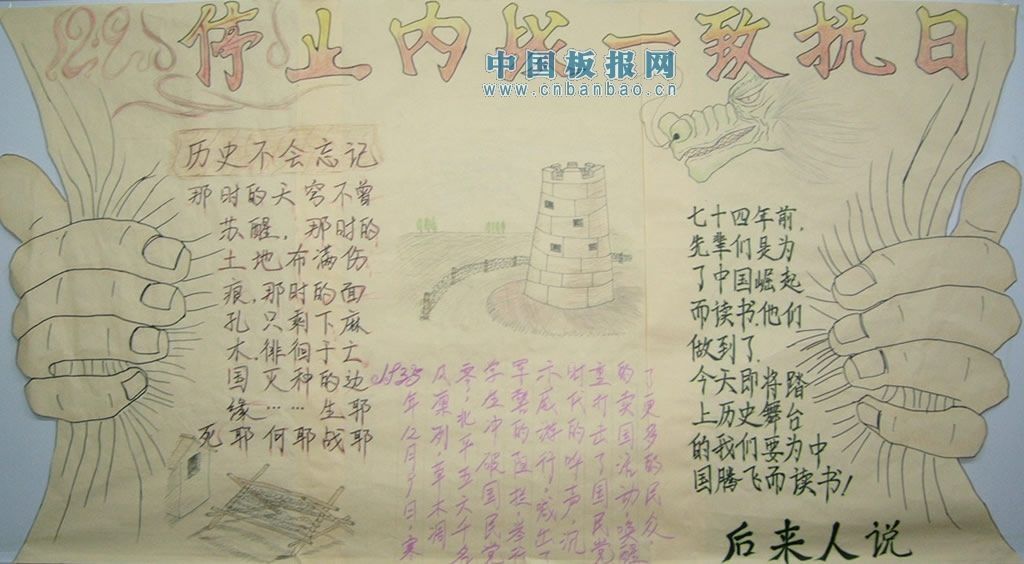 12.9
停止内战一致抗日
中国板报网
www.cnbanbao.cn
历史不会忘记
那时的天穷不曾
苏醒，那时的
土地布满伤
痕，那时的面
孔只剩下麻
木，徘徊于亡
国灭种的边
缘……生耶
死耶何耶战耶
1935年12月9日，寒
风凛冽，草木凋
零。北平五六千名
学生冲破国民党
军警的阻拦举行
示威游行，发出了
时代的呼声，沉
重打击了国民党
的卖国活动，唤醒
了更多的民众。
七十四年前，
先辈们是为
了中国崛起
而读书.他们
做到了.
今天即将踏
上历史舞台
的我们要为中
国腾飞而读书!
后来人说